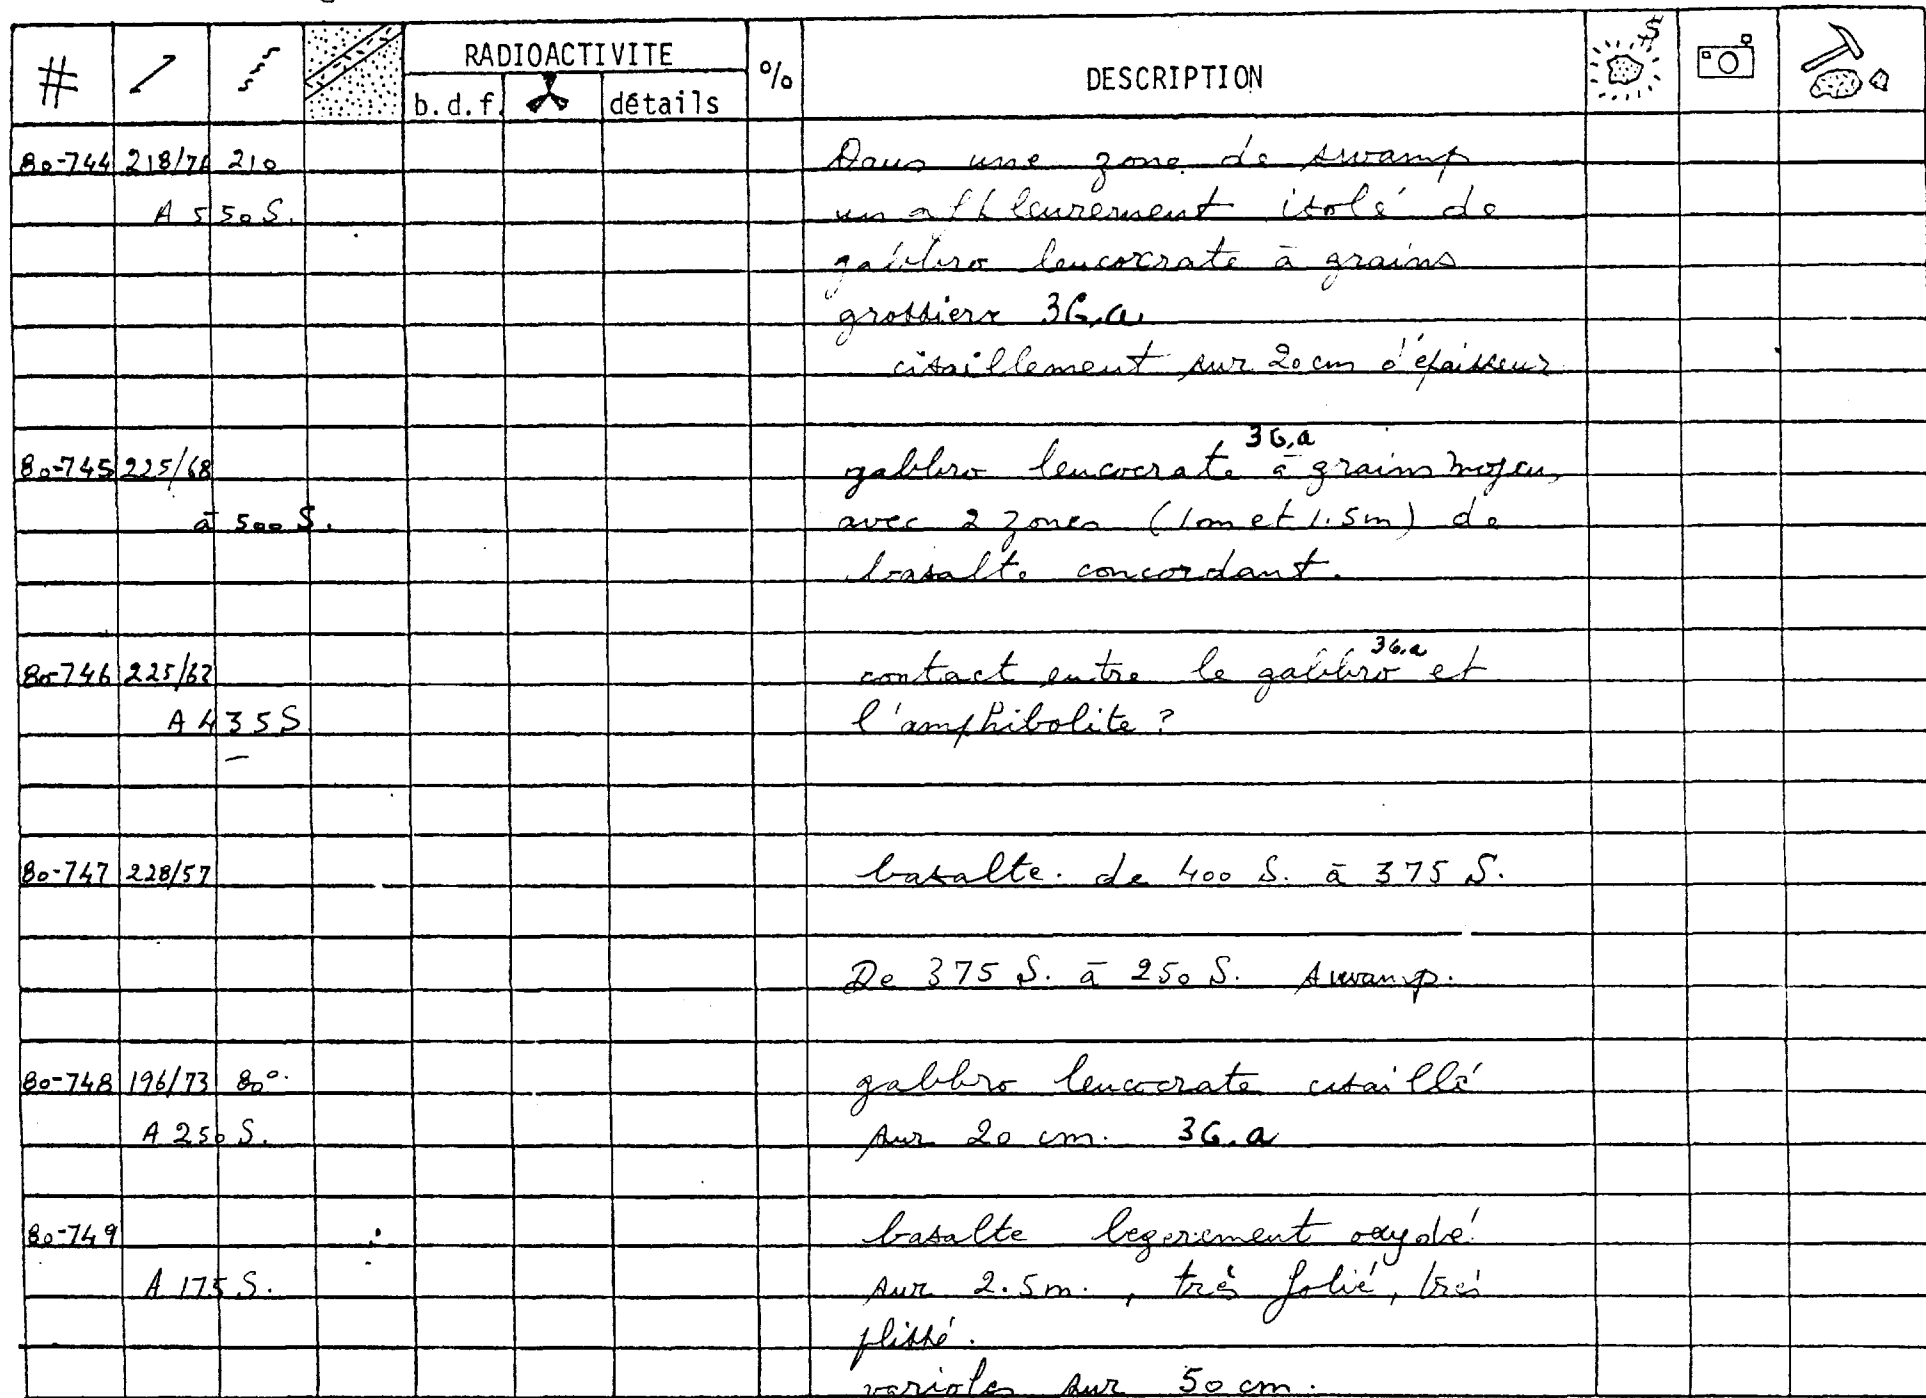 # RADIOACTIVITE % DESCRIPTION S
b.d.f. détails
80-744 218/76 210 Dans une zone de swamp
A 550 S. un affleurement isolé de
gabbro leucocrate à grains
grossiers 3G.a
cisaillement sur 20 cm d'épaisseur
3G.a
80-745 225/68 gabbro leucocrate à grains moyens
à 500 S. avec 2 zones (1m et 1.5m) de
basalte concordant.
3G.a
80-746 225/62 contact entre le gabbro et
A 435 S l'amphibolite?
80-747 228/57 basalte. de 400 S. à 375 S.
De 375 S. à 250 S. swamp.
80-748 196/73 80°. gabbro leucocrate cisaillé
A 250 S. sur 20 cm. 3G.a
80-749 basalte legerement oxydé
A 175 S. sur 2.5m., très folié, très
plissé.
varioles sur 50 cm.